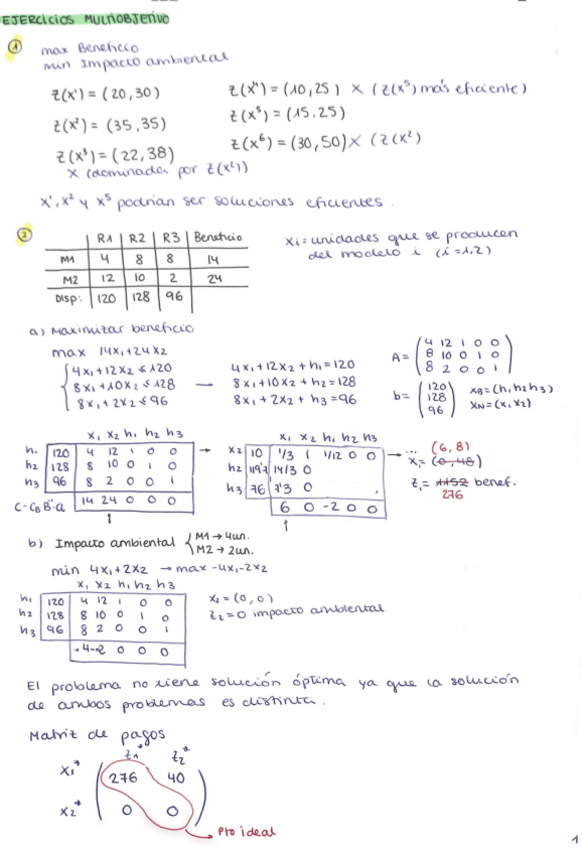 EJERCICIOS MULTIOBJETIVO
① max Beneficio
min Impacto ambiental
z(x¹) = (20,30)
z(x²) = (35,35)
z(x³) = (22,38)
X (dominada por z(x²))
z(x⁴) = (10,25) X (z(x⁵) más eficiente)
z(x⁵) = (15,25)
z(x⁶) = (30,50) X (z(x²)
x¹, x² y x⁵ podrían ser soluciones eficientes.
②
R1 R2 R3 Beneficio
M1 4 8 8 14
M2 12 10 2 24
Disp: 120 128 96
xi = unidades que se producen
del modelo i (i=1,2)
a) Maximizar beneficio
max 14x₁+24x₂
4x₁+12x₂ ≤ 120
8x₁+10x₂ ≤ 128
8x₁+2x₂ ≤ 96
4x₁+12x₂+h₁=120
8x₁+10x₂+h₂=128
8x₁+2x₂+h₃=96
A = 4 12 1 0 0
8 10 0 1 0
8 2 0 0 1
b = (120 128 96)
xB=(h₁ h₂ h₃)
xN=(x₁ x₂)
x₁ x₂ h₁ h₂ h₃
h₁ 120 4 12 1 0 0
h₂ 128 8 10 0 1 0
h₃ 96 8 2 0 0 1
C-CB B⁻¹a 14 24 0 0 0
x₁ x₂ h₁ h₂ h₃
x₂ 10 1/3 1 1/12 0 0
h₂ 14/3 0
h₃ 76 0
6 0 -2 0 0
... (6,8)
x₁=(0,48)
z₁= 1152 benef.
276
b) Impacto ambiental
M1 → 4un.
M2 → 2un.
min 4x₁+2x₂ → max -4x₁-2x₂
x₁ x₂ h₁ h₂ h₃
h₁ 120 4 12 1 0 0
h₂ 128 8 10 0 1 0
h₃ 96 8 2 0 0 1
-4 -2 0 0 0
x₂ = (0,0)
z₂=0 impacto ambiental
El problema no tiene solución óptima ya que la solución
de ambos problemas es distinta.
Matriz de pagos
z₁* z₂*
x₁* 276 40
x₂* 0 0
Pto ideal
1